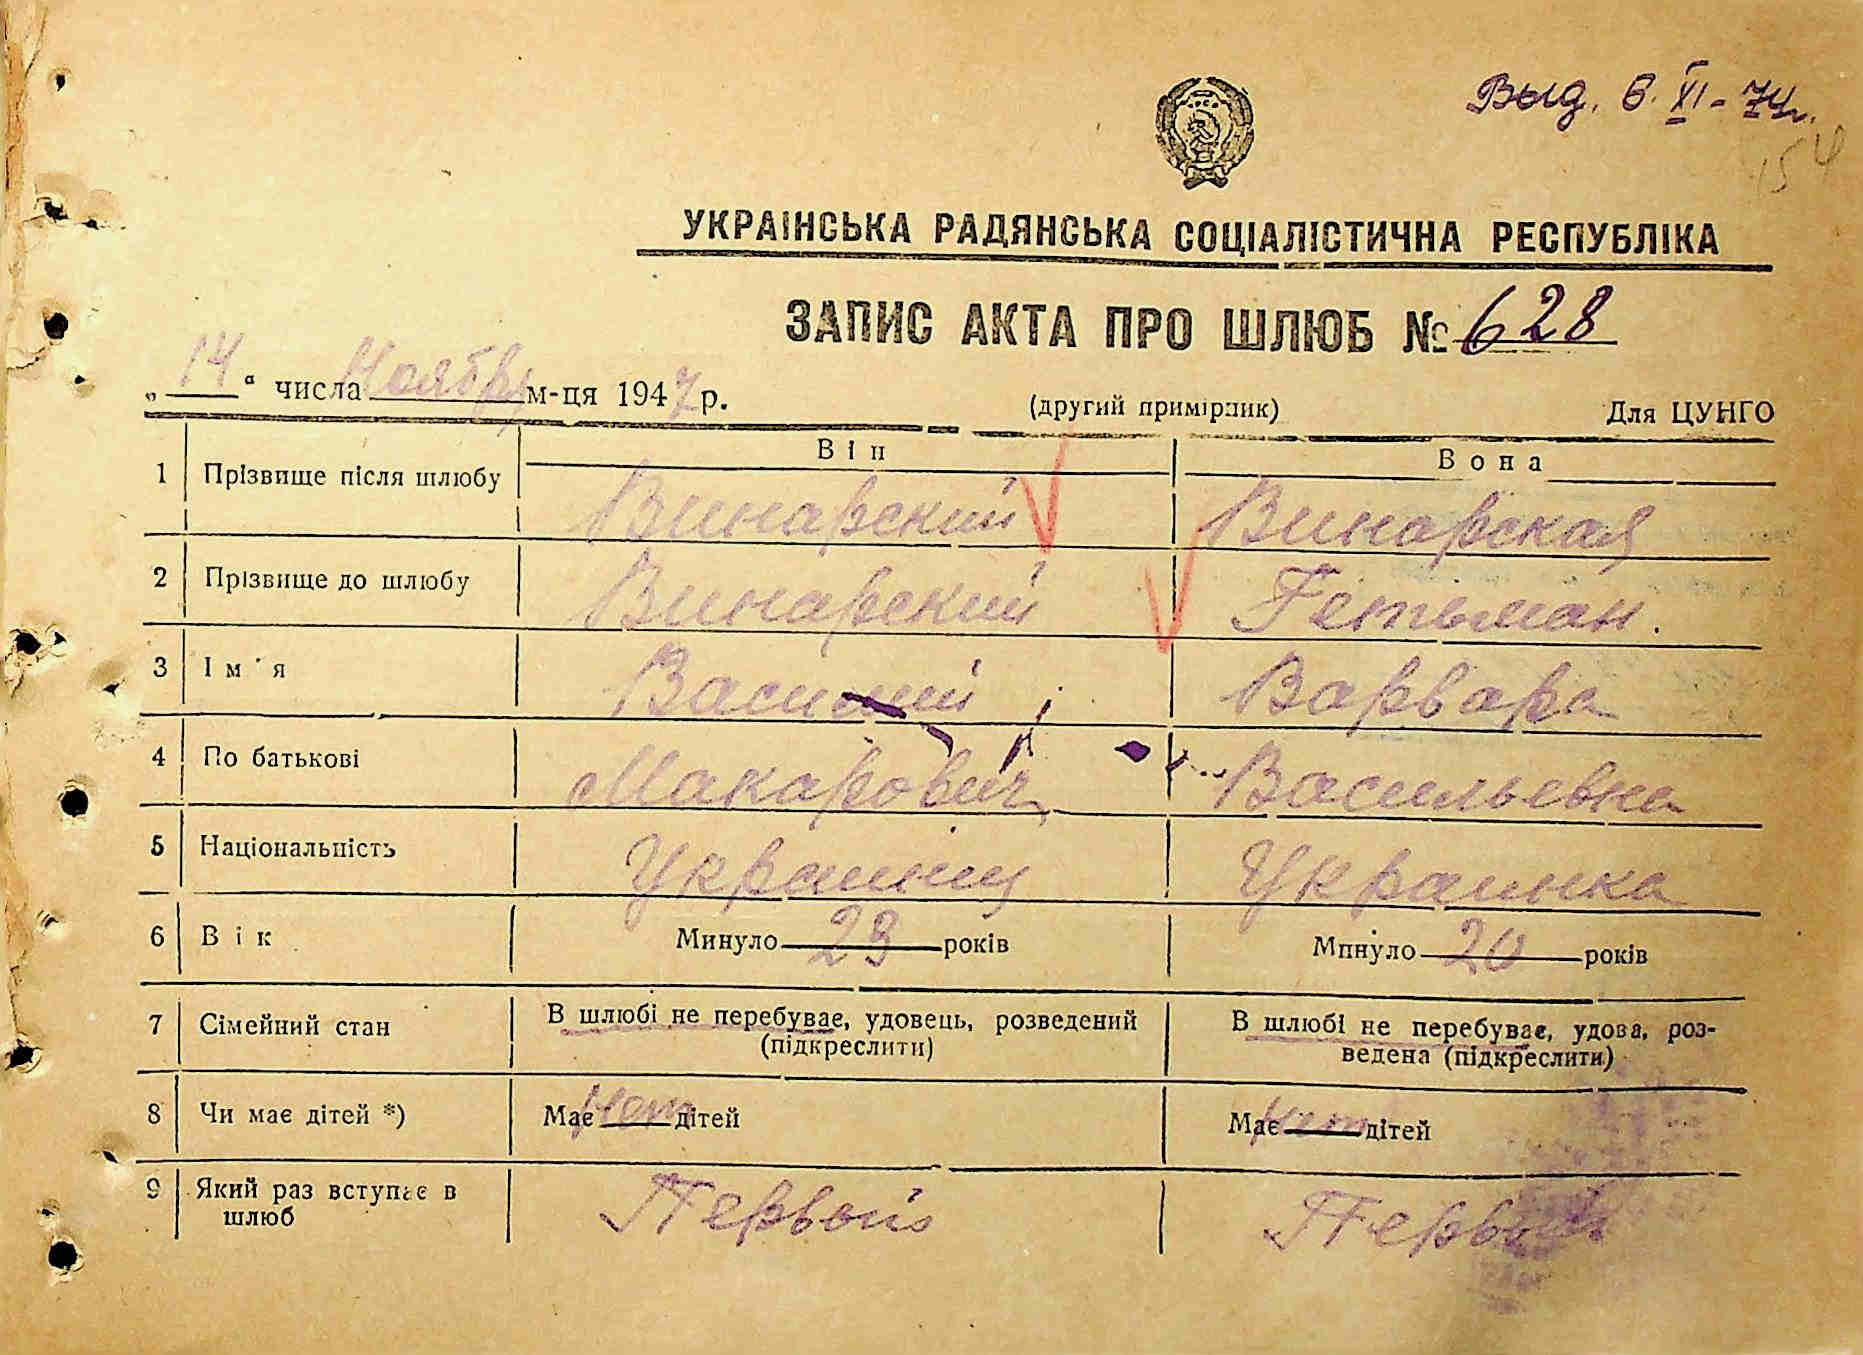 Выд. 6. XI - 74г.
154
УКРАЇНСЬКА РАДЯНСЬКА СОЦІАЛІСТИЧНА РЕСПУБЛІКА
ЗАПИС АКТА ПРО ШЛЮБ № 628
„ 14 " числа Ноября м-ця 1947 р. (другий примірник) Для ЦУНГО
Він Вона
1 Прізвище після шлюбу Винарский Винарская
2 Прізвище до шлюбу Винарский Гетьман.
3 Ім'я Василий Варвара
4 По батькові Макарович Васильевна
5 Національність Украинец Украинка
6 Вік Минуло 23 років Минуло 20 років
7 Сімейний стан В шлюбі не перебуває, удовець, розведений (підкреслити) В шлюбі не перебуває, удова, роз-
ведена (підкреслити)
8 Чи має дітей *) Має Нет дітей Має Нет дітей
9 Який раз вступає в шлюб Первый Первый